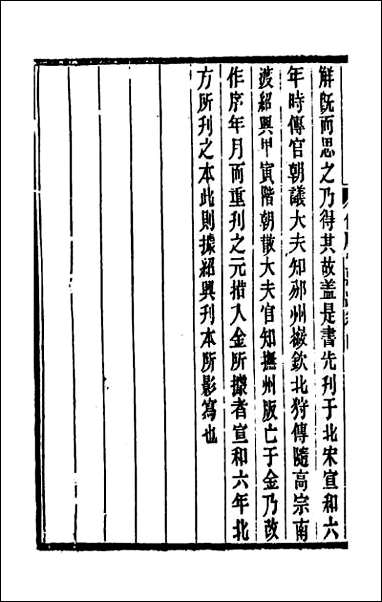 解既而思之乃得其故盖是書先刊于北宋宣和六
年時傳官朝議大夫知邠州嶶欽北狩傳隨高宗南
渡紹興甲寅階朝散大夫官知撫州版亡于金乃改
作序年月而重刊之元措入金所據者宣和六年北
方所刊之本此則據紹興刊本所影寫也